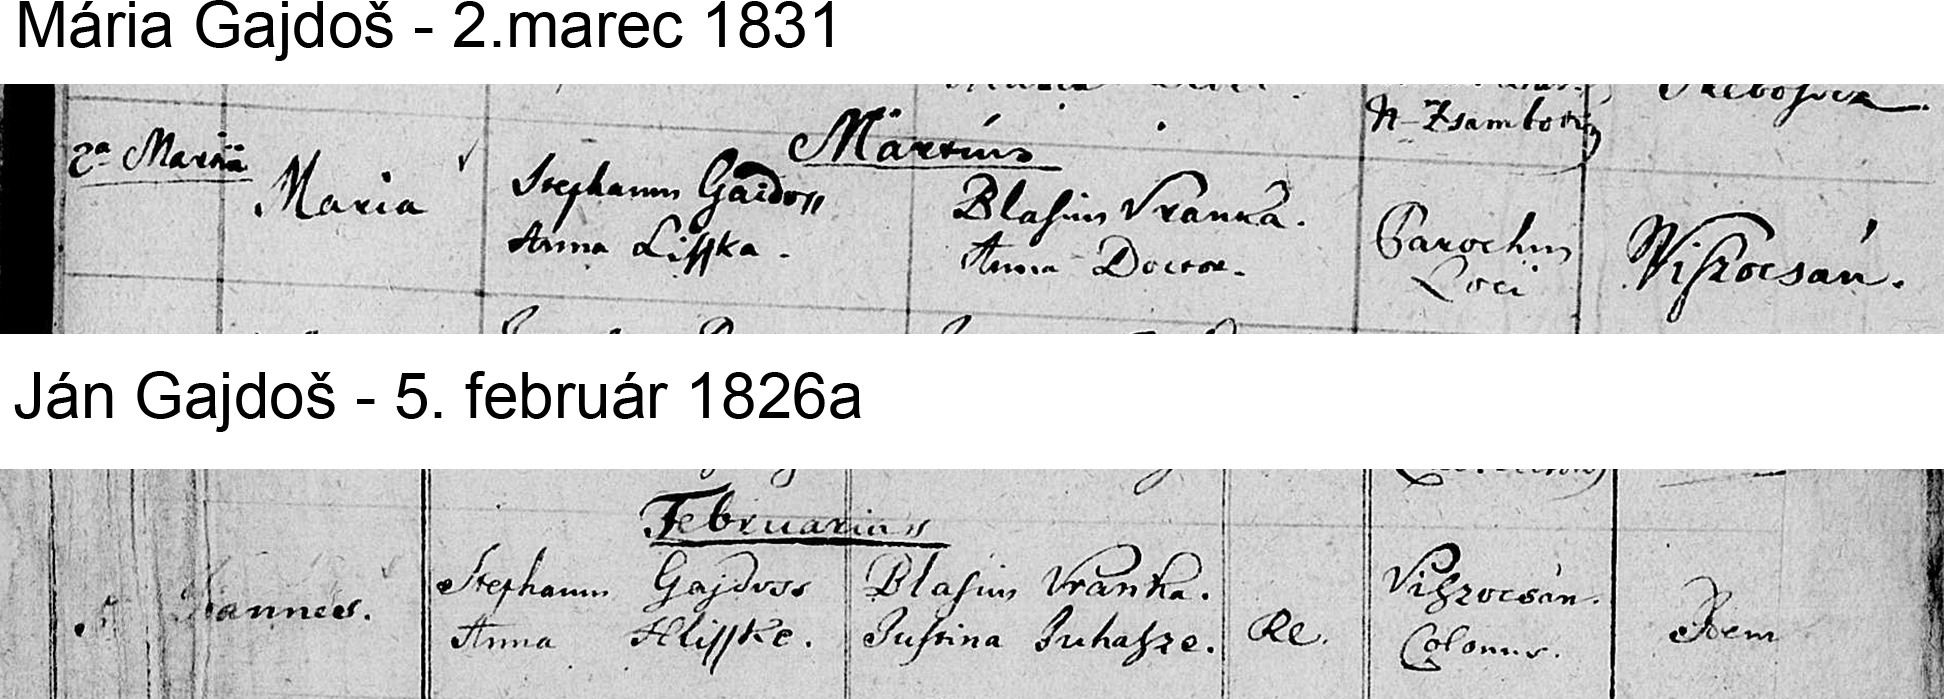 Mária Gajdoš - 2.marec 1831
N-Zsambok
Martius
2a Martii
Maria
Stephanus Gaidoss
Anna Lisska.
Blasius Vranka.
Anna Doctor.
Parochus
Loci
Viszocsán.
Ján Gajdoš - 5. február 1826a
Februarius
5.
Joannes.
Stephanus Gajdoss
Anna Hlisske.
Blasius Vranka.
Justina Juhasze.
RC.
Viszocsán.
Colonus.
Idem